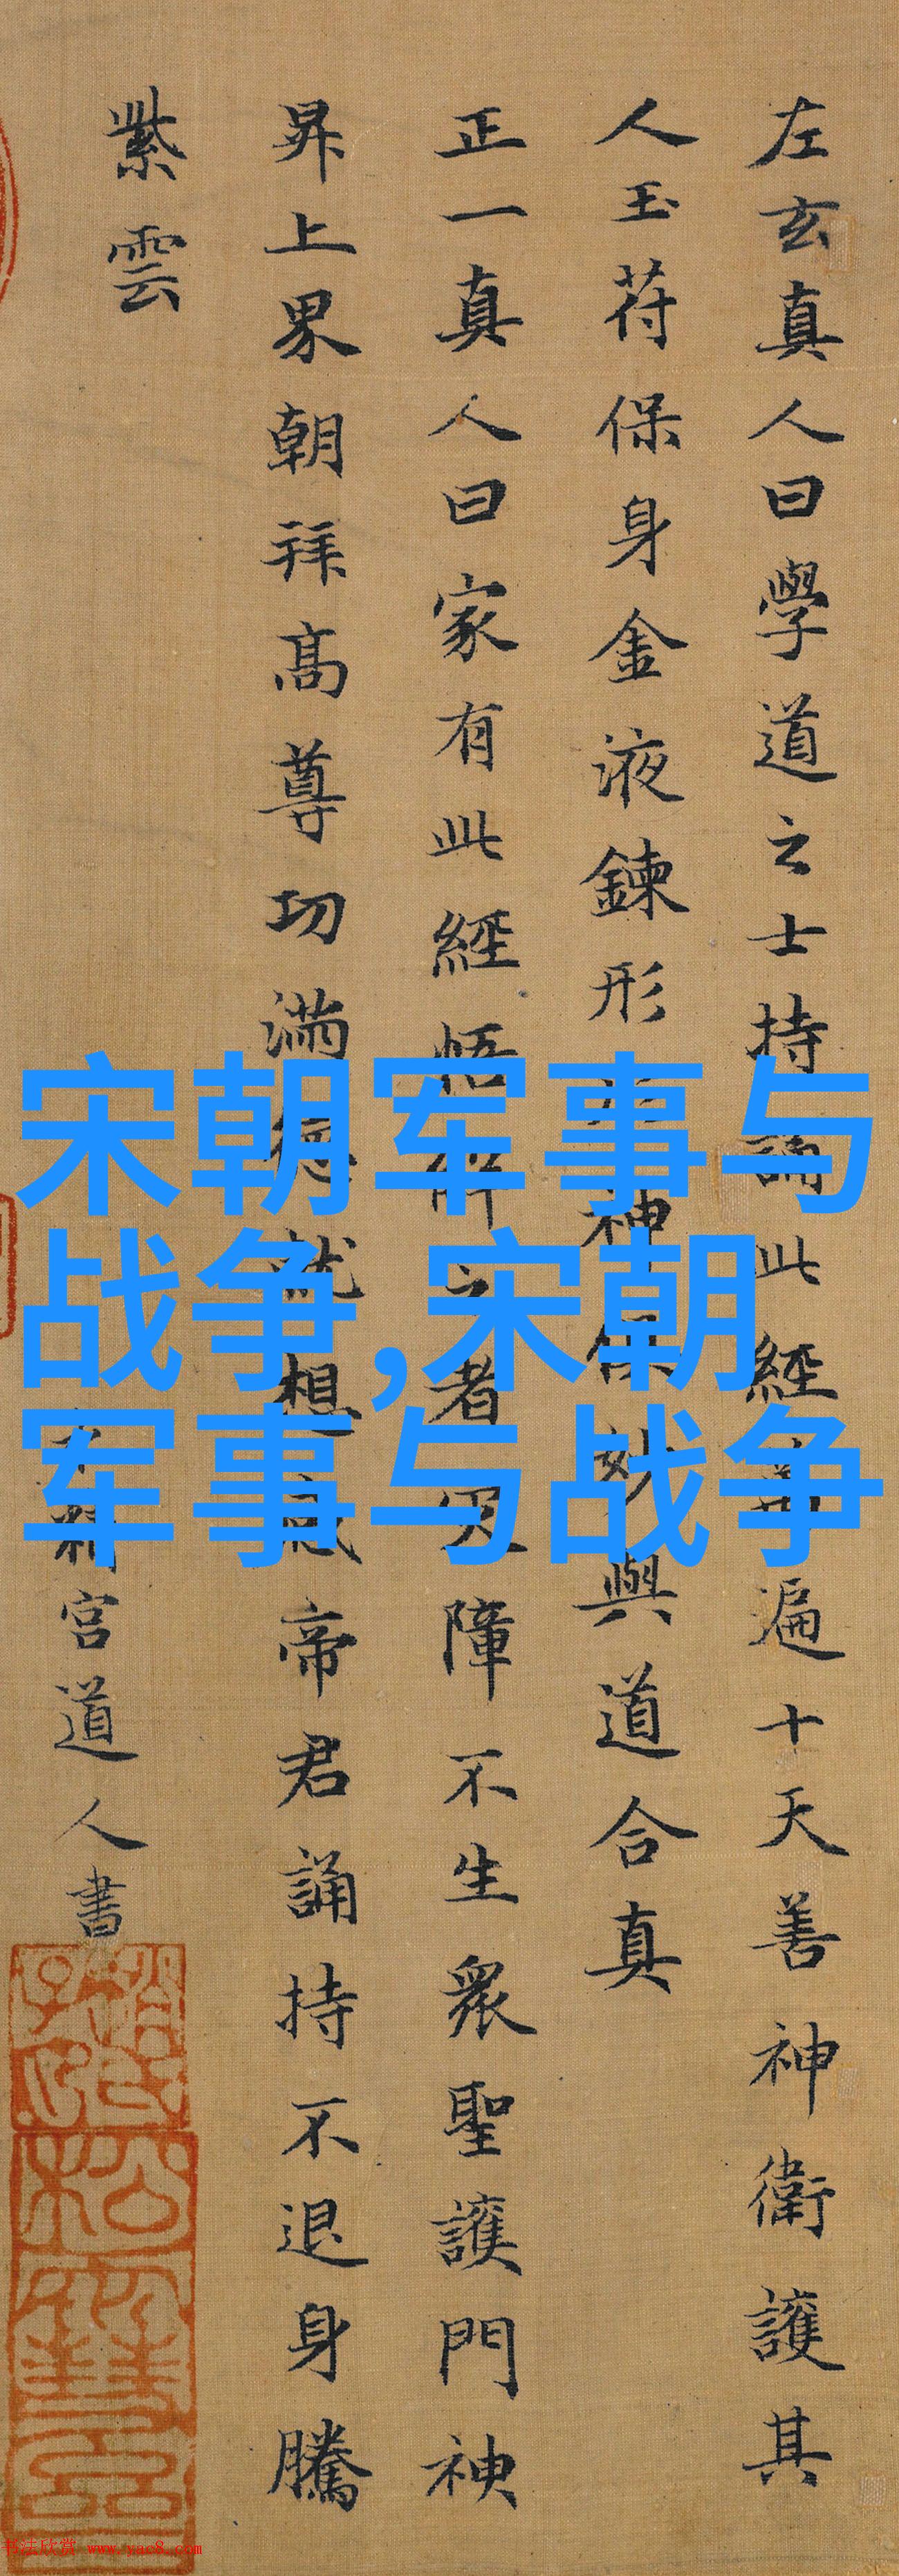 左玄真人曰學道之士持誦此經遍十天善神衛護其
人玉苻保身金液鍊形神妙與道合真
正一真人曰家有此經悟解之者灾障不生衆聖護門神
昇上界朝拜高尊功滿德就想感帝君誦持不退身騰
紫雲
精宮道人書
宋朝军事与
战争,宋朝
军事与战争
书法欣赏 www.yac8.com